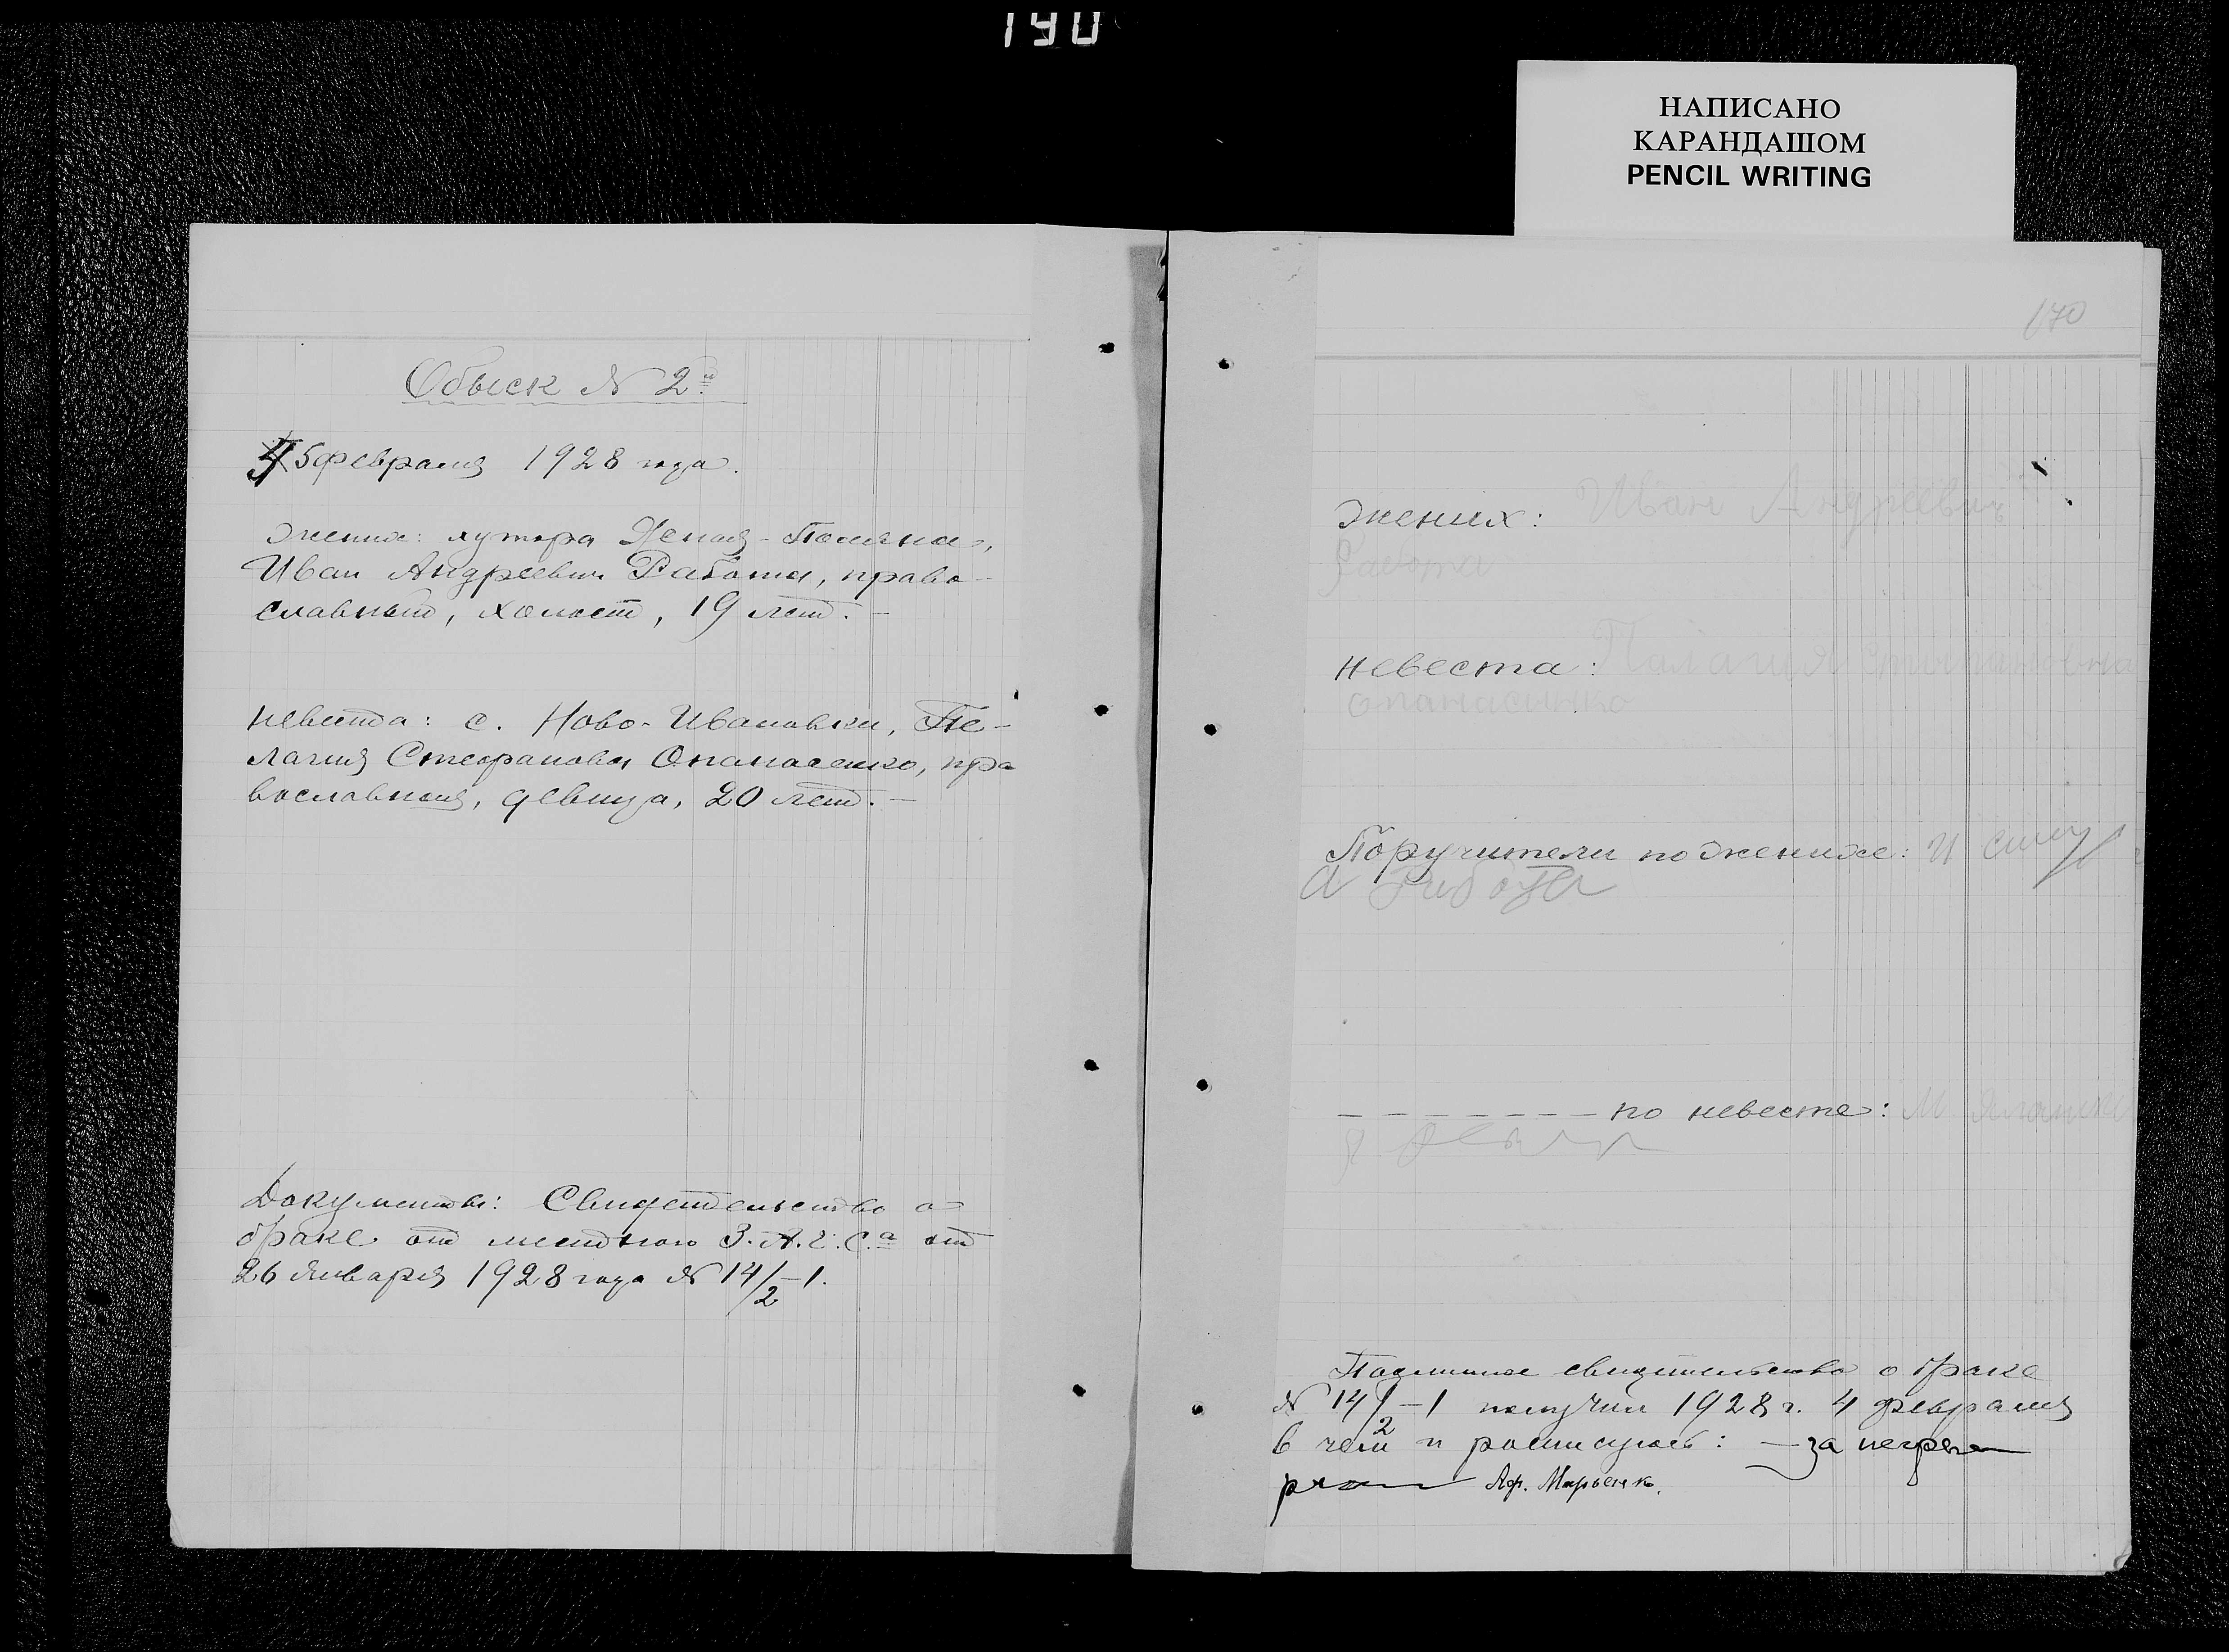 190
НАПИСАНО
КАРАНДАШОМ
PENCIL WRITING
Обыск № 2й
5 февраля 1928 года.
Жених: хутора Ясная-Поляна,
Иван Андреевич Работа, право-
славный, холост, 19 лет. –
Невеста: с. Ново-Ивановки, Пе-
лагия Стефановна Опанасенко, пра
вославная, девица, 20 лет. –
Документы: Свидетельство о
браке от местного З.А.Г.С.а от
26 января 1928 года № 14/2–1.
170
Жених: Иван Андреевич
Работа
Невеста: Палагия Стипановна
Опанасинко
Поручители по женихе: И
А Работа
– – – – – – – по невесте: М
Подлинное свидетельство о браке
№ 14/2–1 получил 1928 г. 4 февраля
в чем и росписуюсь: – за
Аф. Марьенк.